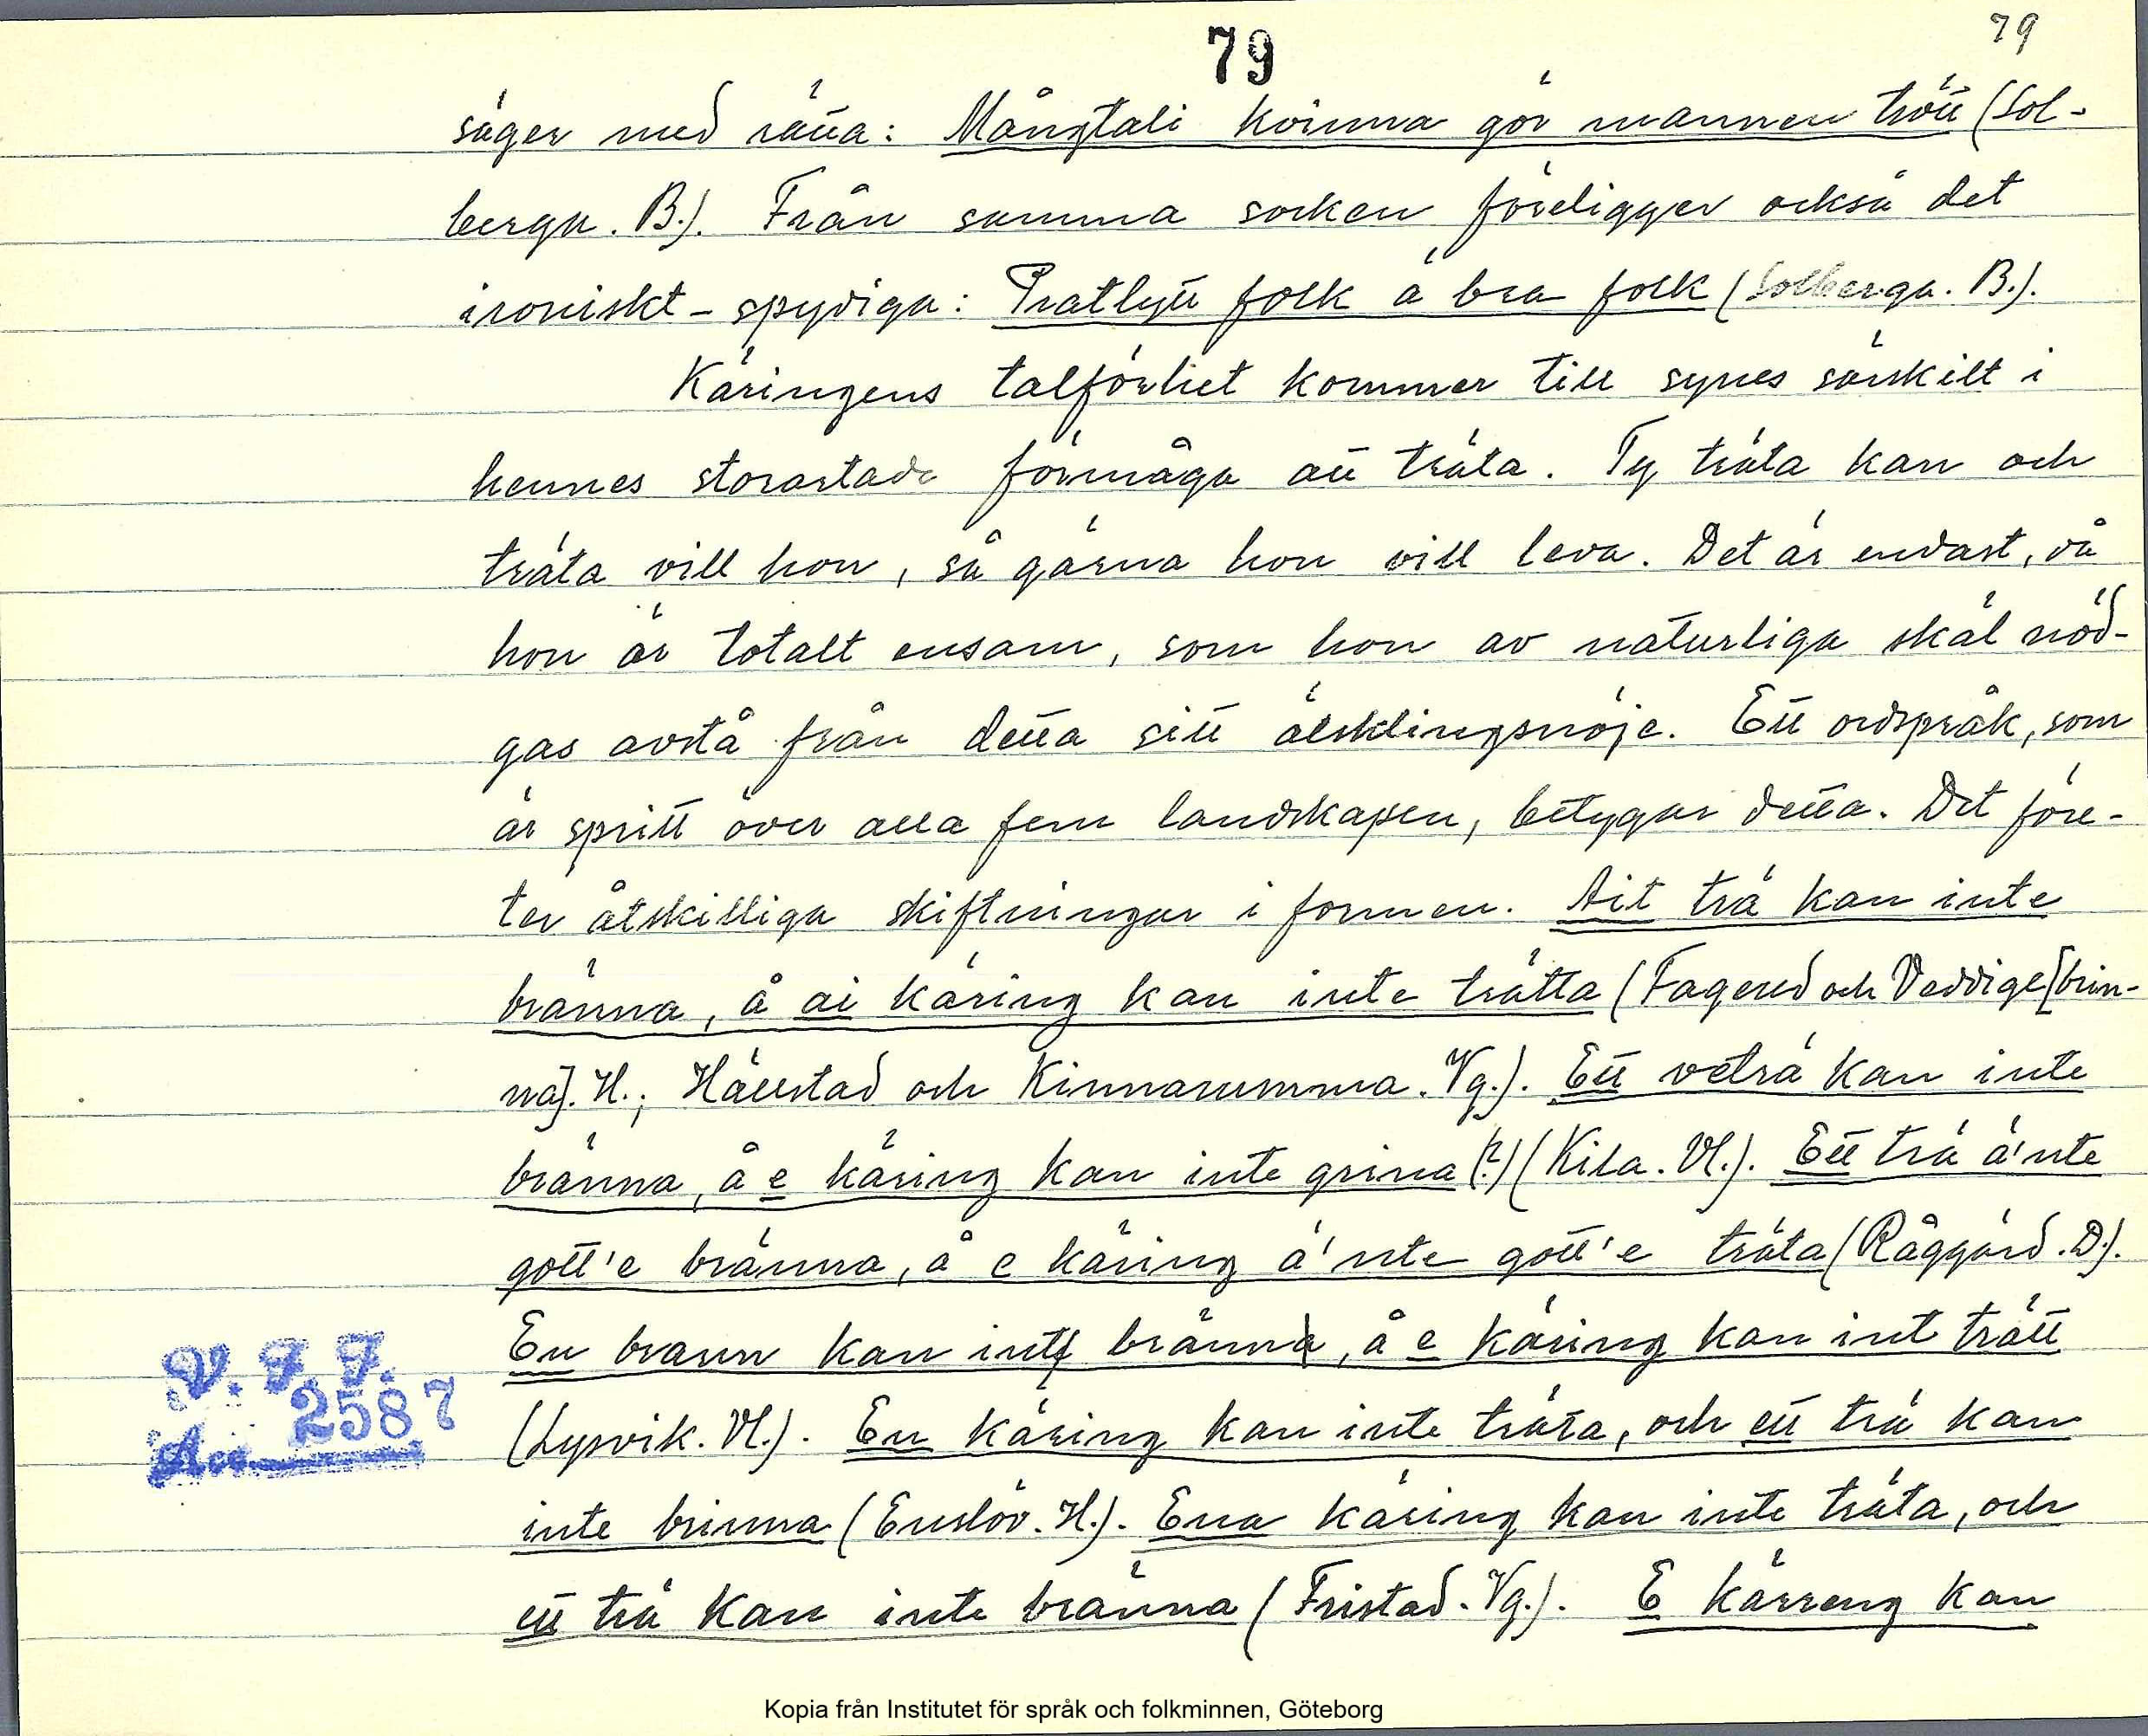 79
79
säger med rätta: Mångtali kvinna gör mannen trött (Sol-
berga. B.). Från samma socken föreligger också det
ironiskt-spydiga: Pratlytt folk ä bra folk (Solberga. B.).
Käringens talförhet kommer till synes särskilt i
hennes storartade förmåga att träta. Ty träta kan och
träta vill hon, så gärna hon vill leva. Det är endast, då
hon är totalt ensam, som hon av naturliga skäl nöd-
gas avstå från detta sitt älsklingsnöje. Ett ordspråk, som
är spritt över alla fem landskapen, betygar detta. Det före-
ter åtskilliga skiftningar i formen. Ait trä kan inte
bränna, å ai käring kan inte trätta (Fagered och Veddige [brin-
na]. H.; Hällstad och Kinnarumma. Vg.). Ett veträ kan inte
bränna, å e käring kan inte grina (?) (Kila. Vl.). Ett trä ä'nte
gott'e bränna, å e käring ä'nte gott'e träta (Råggärd. D.).
En brann kan int bränn, å e käring kan int trätt
(Lysvik. Vl.). En käring kan inte träta, och ett trä kan
inte brinna (Enslöv. H.). Ena käring kan inte träta, och
ett trä kan inte bränna (Fristad. Vg.). E kärreng kan
V. F. F.
Acc. 2587
Kopia från Institutet för språk och folkminnen, Göteborg